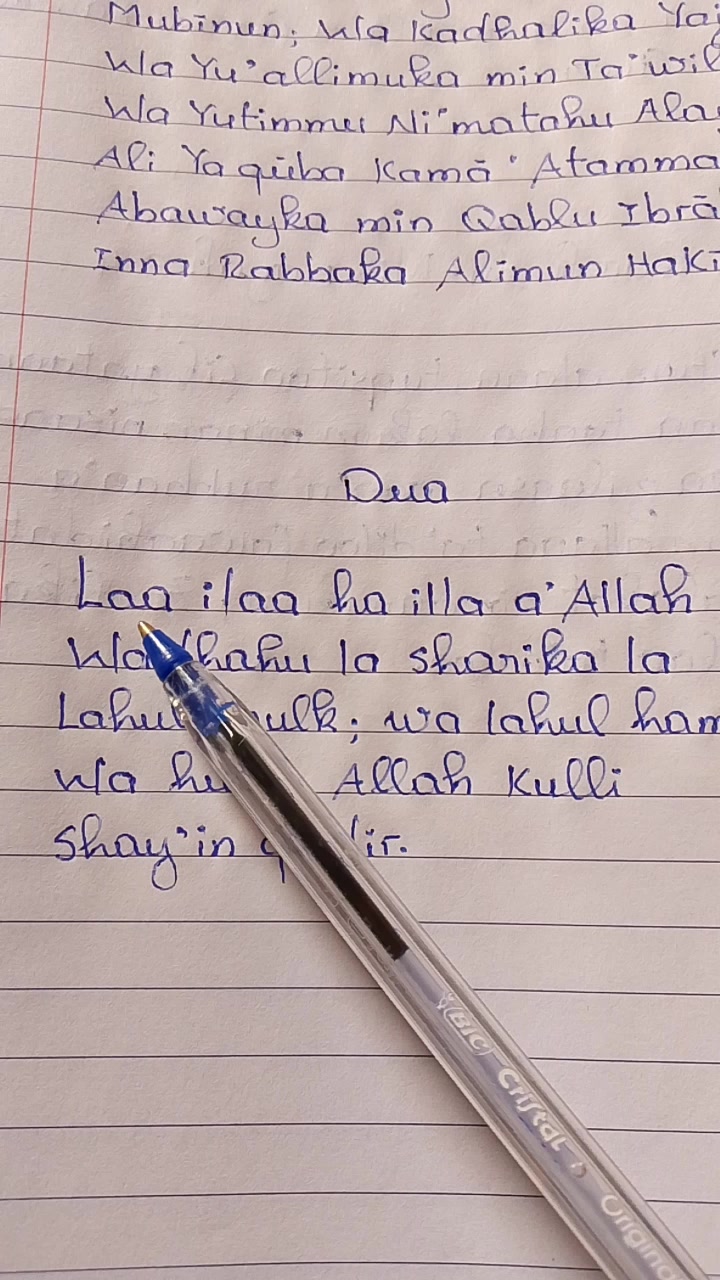 Mubinun; Wa Kadhalika Yaj
Wa Yu'allimuka min Ta'wil
Wa Yutimmu Ni'matahu Ala
Ali Yaqūba Kamā 'Atamma
Abawayka min Qablu Ibrā
Inna Rabbaka Alimun Hakī
Dua
Laa ilaa ha illa a'Allah
la sharika la
wa lahul ham
Wa Allah Kulli
Shay'in
BIC Cristal Original